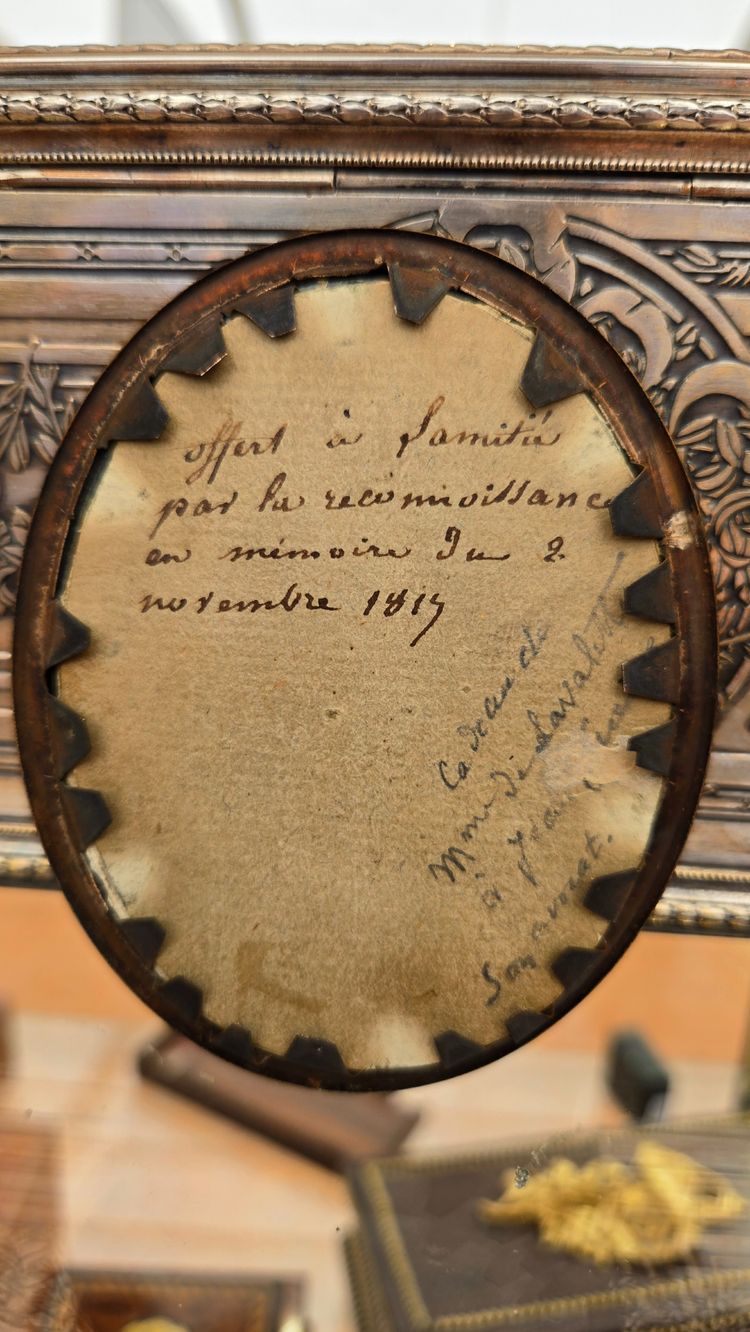 offert à l'amitié
par la reconnoissance
en mémoire du 2
novembre 1817
Cadeau de
Mme de Lavalette
à
Son avocat.